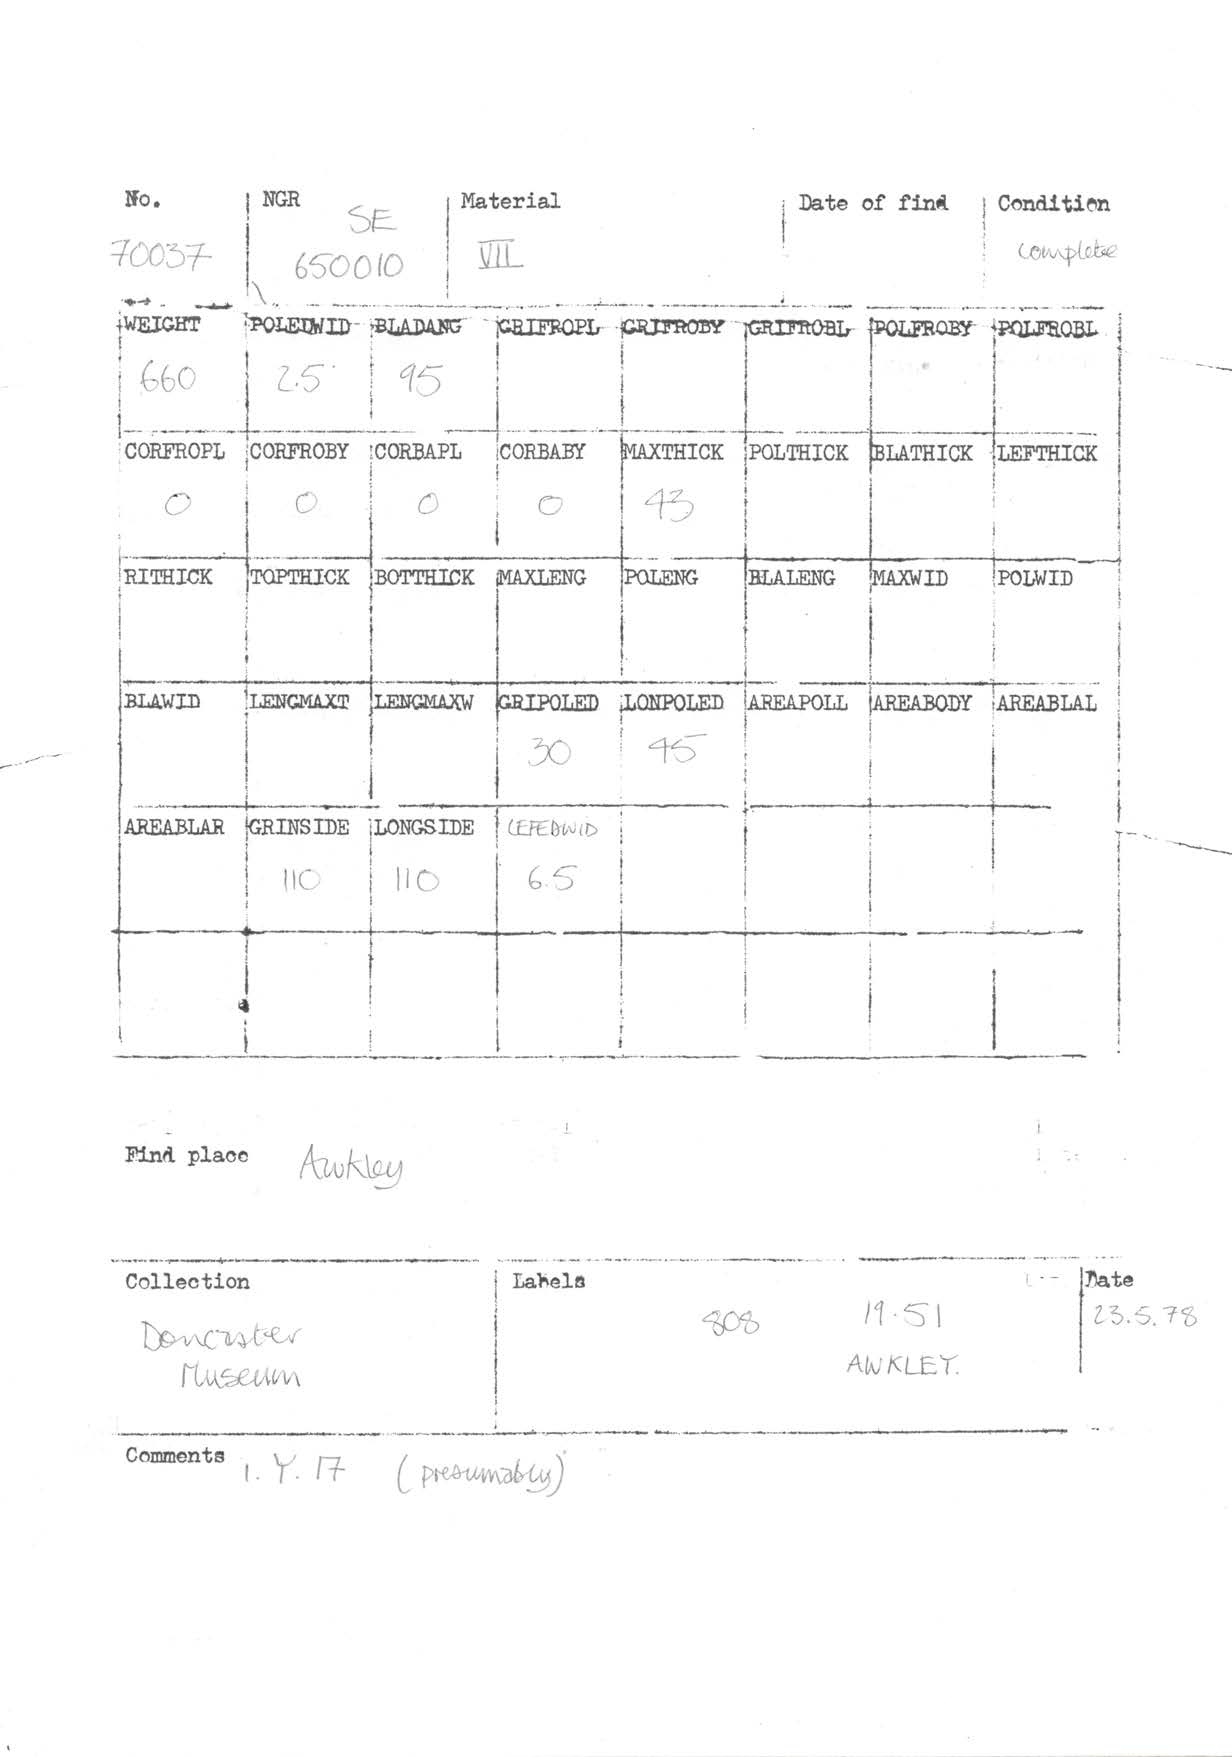 No. NGR Material Date of find Condition
70037 SE 650010 VII complete
WEIGHT POLEDWID BLADANG GRIFROPL GRIFROBY GRIFROBL POLFROBY POLFROBL
660 2.5 95
CORFROPL CORFROBY CORBAPL CORBABY MAXTHICK POLTHICK BLATHICK LEFTHICK
0 0 0 0 43
RITHICK TOPTHICK BOTTHICK MAXLENG POLENG BLALENG MAXWID POLWID
BLAWID LENGMAXT LENGMAXW GRIPOLED LONPOLED AREAPOLL AREABODY AREABLAL
30 45
AREABLAR GRINSIDE LONGSIDE LEFEDWID
110 110 6.5
Find place Awkley
Collection Labels Date
Doncaster 808 19.51 23.5.78
Museum AWKLEY.
Comments 1. Y. 17 (presumably)